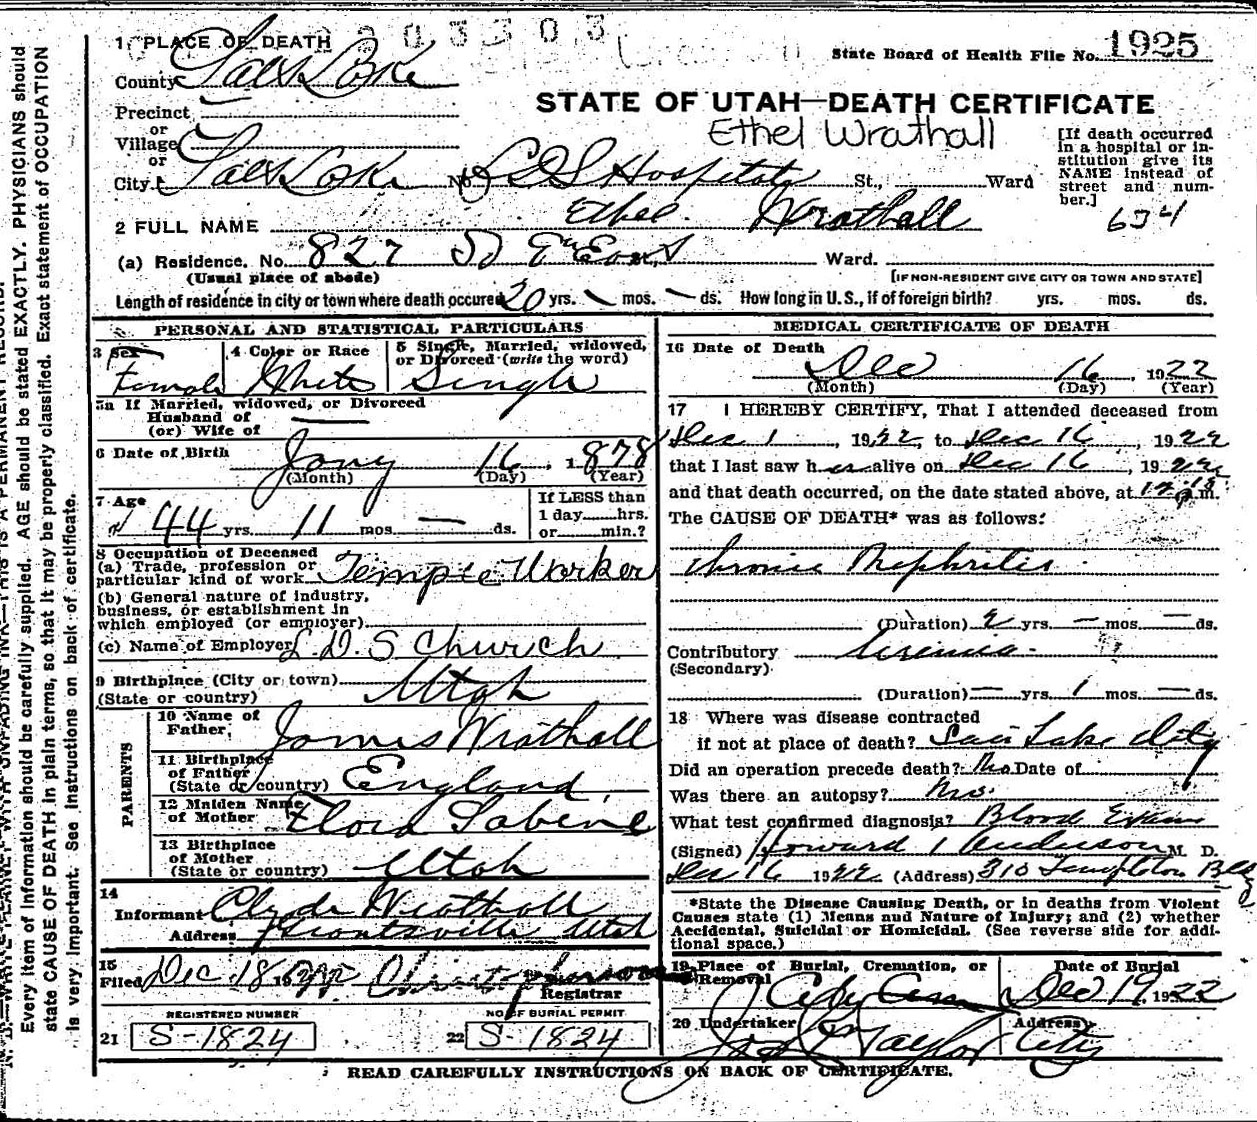 203303
1 PLACE OF DEATH
State Board of Health File No. 1925
County Salt Lake
STATE OF UTAH—DEATH CERTIFICATE
Precinct
or
Village
or
Ethel Wrathall
[If death occurred in a hospital or institution give its NAME instead of street and number.]
City Salt Lake No. LDS Hospital St., Ward
634
2 FULL NAME Ethel Wrathall
(a) Residence. No. 827 So Ward.
(Usual place of abode) [IF NON-RESIDENT GIVE CITY OR TOWN AND STATE]
Length of residence in city or town where death occured 20 yrs. — mos. — ds. How long in U.S., if of foreign birth? yrs. mos. ds.
PERSONAL AND STATISTICAL PARTICULARS
3 Sex 4 Color or Race 5 Single, Married, widowed, or Divorced (write the word)
Female White Single
5a If Married, widowed, or Divorced
Husband of
(or) Wife of —
6 Date of Birth Jany 16, 1878
(Month) (Day) (Year)
7 Age 44 yrs. 11 mos. — ds. If LESS than 1 day......hrs. or......min.?
8 Occupation of Deceased
(a) Trade, profession or
particular kind of work Temple Worker
(b) General nature of industry,
business, or establishment in
which employed (or employer)
(c) Name of Employer L.D.S Church
9 Birthplace (City or town)
(State or country) Utah
PARENTS
10 Name of Father, James Wrathall
11 Birthplace of Father (State or country) England
12 Maiden Name of Mother Flora Sabine
13 Birthplace of Mother (State or country) Utah
14
Informant Clyde Wrathall
Address Grantsville Utah
15
Filed Dec 18 1922
Registrar
REGISTERED NUMBER NO OF BURIAL PERMIT
21 S-1824 22 S-1824
MEDICAL CERTIFICATE OF DEATH
16 Date of Death
Dec 16, 1922
(Month) (Day) (Year)
17 I HEREBY CERTIFY, That I attended deceased from
Dec 1, 1922, to Dec 16, 1922
that I last saw her alive on Dec 16, 1922,
and that death occurred, on the date stated above, at m.
The CAUSE OF DEATH* was as follows:
Chronic Nephritis
(Duration) 2 yrs. — mos. — ds.
Contributory Uremia
(Secondary)
(Duration) — yrs. 1 mos. — ds.
18 Where was disease contracted
if not at place of death? Salt Lake City
Did an operation precede death? No Date of
Was there an autopsy? No.
What test confirmed diagnosis? Blood Exam
(Signed) Howard Anderson M. D.
Dec 16 1922 (Address) 310 Templeton Bldg
*State the Disease Causing Death, or in deaths from Violent
Causes state (1) Means and Nature of Injury; and (2) whether
Accidental, Suicidal or Homicidal. (See reverse side for additional space.)
19 Place of Burial, Cremation, or Removal Date of Burial
City Cem Dec 19, 1922
20 Undertaker Address
Taylor City
READ CAREFULLY INSTRUCTIONS ON BACK OF CERTIFICATE.
Every item of information should be carefully supplied. AGE should be stated EXACTLY. PHYSICIANS should
state CAUSE OF DEATH in plain terms, so that it may be properly classified. Exact statement of OCCUPATION
is very important. See instructions on back of certificate.